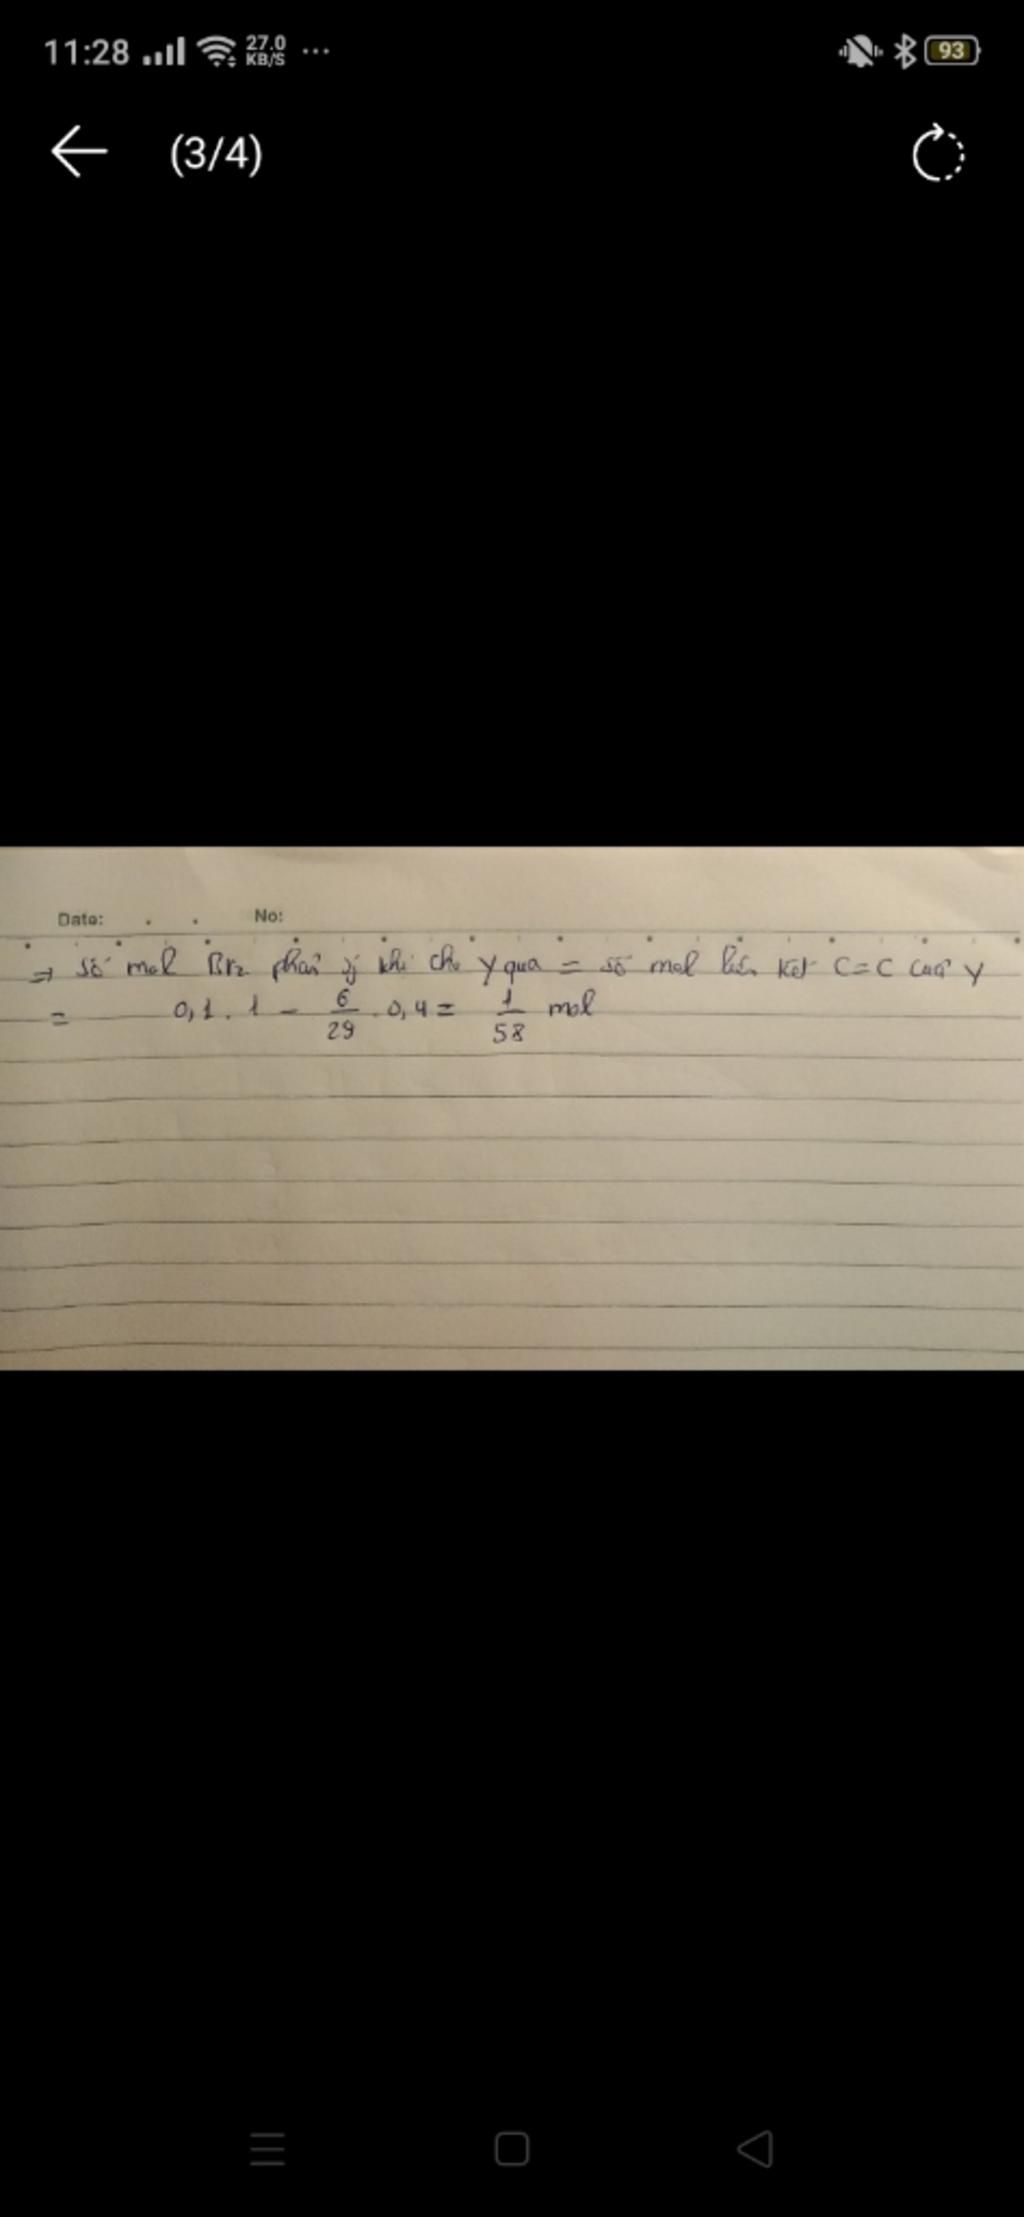 11:28 27.0 KB/S ... 93
(3/4)
Date: . . No:
⇒ số mol Br2 phản ứ khi cho Y qua = số mol liên kết C=C của Y
= 0,1 . 1 - 6/29 . 0,4 = 1/58 mol